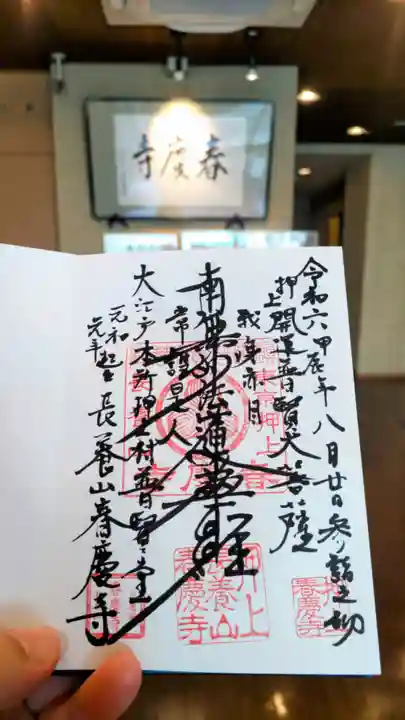 春慶寺
令和六甲辰年八月廿日参詣之砌
押上開運普賢大菩薩
我深赤目
南無妙法蓮華経
常護是人
大江戸本所押上村普賢堂
元和元年起
長養山春慶寺
押上
長養山
春慶寺
押上
春慶寺